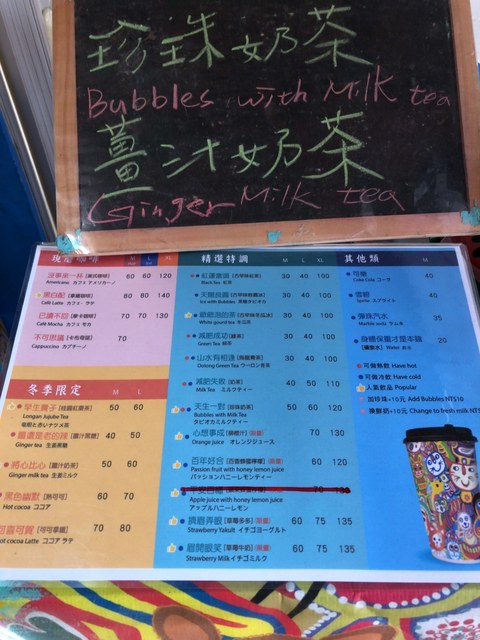 珍珠奶茶
Bubbles with Milk tea
薑汁奶茶
Ginger Milk tea
M L XL
Americano カフェ アメリカーノ
60 60 120
Caffè Latte カフェ・ラテ
80 80 140
Caffè Mocha カフェ モカ
70 70 130
不可思議
Cappuccino カプチーノ
70
冬季限定
M L
早生貴子
Longan Jujube Tea
50 60
薑還是老的辣
Ginger tea 生姜茶
40 50
將心比心
Ginger milk tea 生姜ミルク
50 60
黑色幽默 [熱可可]
Hot cocoa ココア
60 70
可喜可賀
Hot cocoa Latte ココア ラテ
70 80
精選特調
M L XL
Black Tea 紅茶
30 40 100
30 40 100
30 40 100
減肥成功 [綠茶]
Green Tea 緑茶
30 40 100
山水有相逢
Oolong Green Tea ウーロン茶
30 40 100
減肥失敗 [奶茶]
Milk Tea ミルクティー
40 50 110
天生一對 [珍珠奶茶]
Bubbles with Milk Tea
タピオカミルクティー
50 60 120
心想事成
Orange juice オレンジジュース
70 130
百年好合
Passion fruit with honey lemon juice
パッションハニーレモンティー
60 120
Apple juice with honey lemon juice
アップルハニーレモン
Strawberry Yakult イチゴヨーグルト
60 75 135
眉開眼笑 [草莓牛奶]
Strawberry Milk イチゴミルク
60 75 135
其他類
M
可樂
Coke Cola コーラ
40
雪碧
Sprite スプライト
40
彈珠汽水
Marble soda ラムネ
35
身體保重才是本錢
Water お水
20
可做熱飲 Have hot
可做冷飲 Have cold
人氣飲品 Popular
加珍珠+10元 Add Bubbles NT$10
換鮮奶+10元 Change to fresh milk NT$